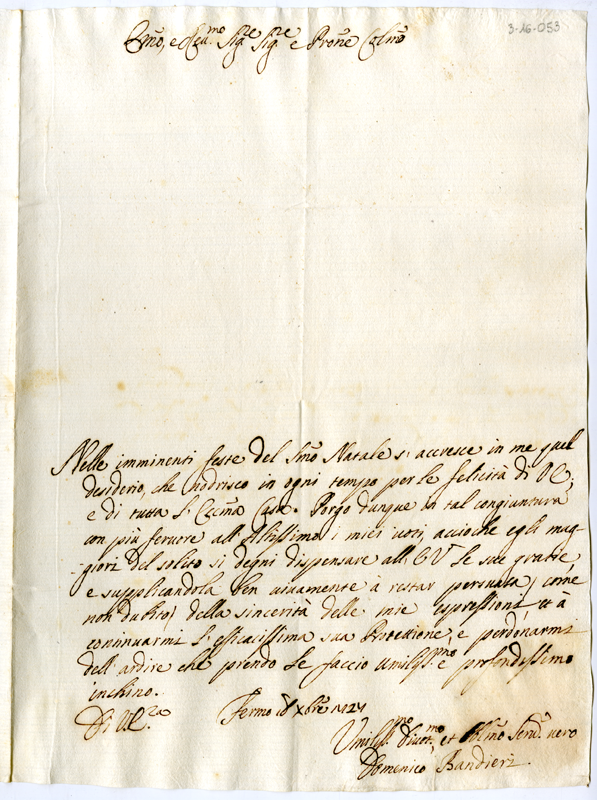 3-26-053
Emõ, e Reu.mo Sig.re Sig.re e Prone Colmõ
Nelle imminenti feste del Smõ Natale s'accresce in me quel
desiderio, che nodrisco in ogni tempo per le felicità di V.E.
e di tutta l'Eccma Casa. Porgo dunque in tal congiuntura
con più feruore all'Altissimo i miei uoti, accioche egli mag-
giori del solito si degni dispensare all'EV le sue gratie,
e supplicandola ben uiuamente à restar persuasa, come
non dubito, della sincerità delle mie espressioni, et à
continuarmi l'efficacissima sua Protezione, e perdonarmi
dell'ardire che prendo le faccio umiliss.mo e profondissimo
inchino.
Di V.E.za Fermo Xbre 1727
Umiliss.mo diuot.mo et Obblmo Serd. uero
Domenico Bandieri